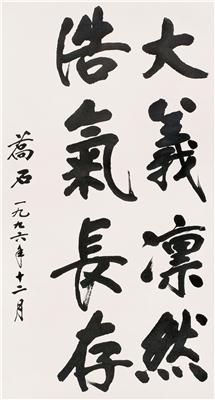 大義凛然
浩氣長存
喬石 一九九六年十二月